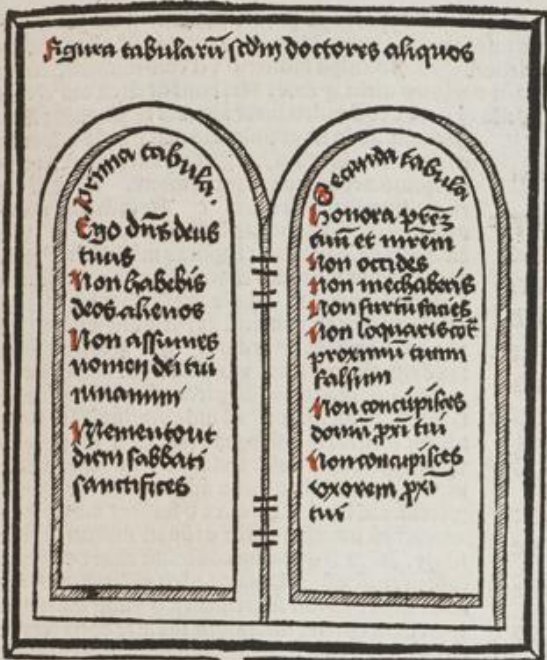 Figura tabularū scd̄m doctores aliquos
Prima tabula.
Ego dn̄s deus
tuus
Non habebis
deos alienos
Non assumes
nomen dei tui
inuanum
Memento ut
diem sabbati
sanctifices
Secunda tabula
Honora prēz
tuū et mrēm
Non occides
Non mechaberis
Non furtū facies
Non loquaris cōt̄
proximū tuum
falsum
Non concupisces
domū pxī tui
Non concupisces
vxorem pxī
tui